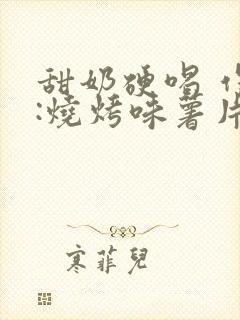 甜奶硬唱
:燒烤味薯片
寒菲兒